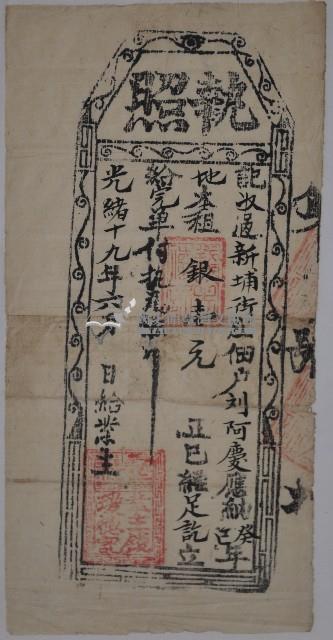 執照
記收過新埔街庄佃戶劉阿慶應納癸巳年
地基租 銀壹元 正已經足訖立
給完單付執為炤
光緒十九年六月 日給業主